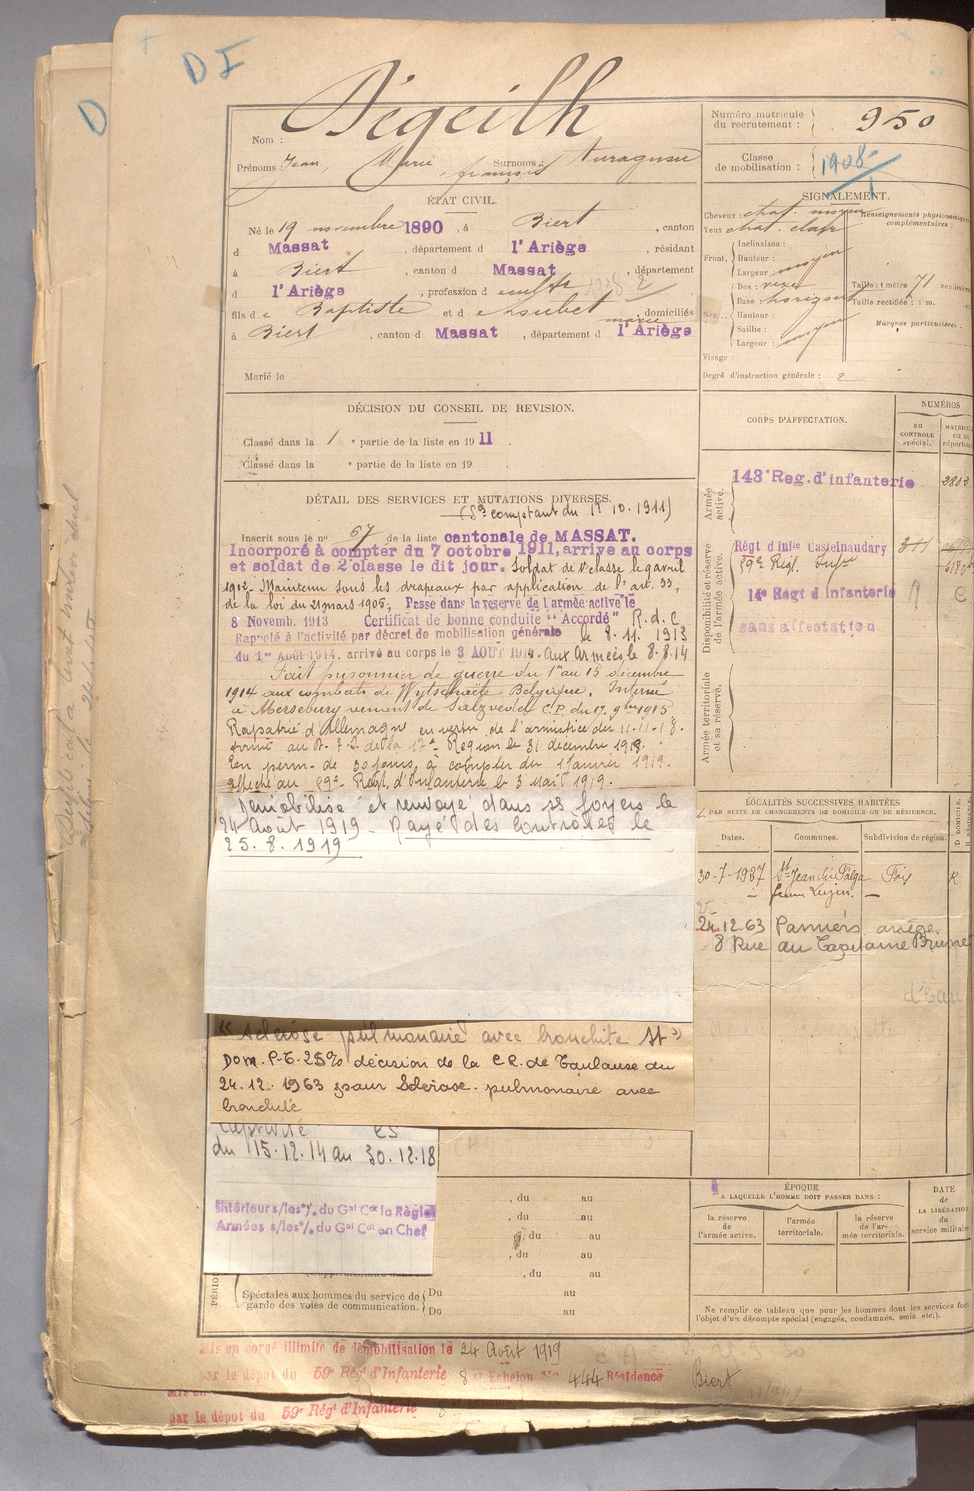 D I
D
Nom :
Dégeilh
Prénoms : Jean, Marie, françois
Surnoms :
ÉTAT CIVIL.
Né le 19 novembre 1890, à Biert, canton
d Massat, département d l'Ariège, résidant
à Biert, canton d Massat, département
d l'Ariège, profession d
fils d e Baptiste et d e Loubet marie domiciliés
à Biert, canton d Massat, département d l'Ariège
Marié le
DÉCISION DU CONSEIL DE REVISION.
Classé dans la 1 e partie de la liste en 1911.
Classé dans la e partie de la liste en 19 .
DÉTAIL DES SERVICES ET MUTATIONS DIVERSES.
(Sce comptant du 1er 10.1911)
Inscrit sous le no 67 de la liste cantonale de MASSAT.
Incorporé à compter du 7 octobre 1911, arrivé au corps
et soldat de 2e classe le dit jour. Soldat de 1e classe le 9 avril
1912. Maintenu sous les drapeaux par application de l'art. 33,
de la loi du 21 mars 1905; Passé dans la réserve de l'armée active le
8 Novemb. 1913 Certificat de bonne conduite "Accordé" R.d.C
Rappelé à l'activité par décret de mobilisation générale le 8.11.1913
du 1er Août 1914, arrivé au corps le 3 AOUT 1914. Aux Armées le 8.8.14
Fait prisonnier de guerre du 1er au 15 décembre
1914 aux combats de Wytschaete Belgique. Interné
à Merseburg venant de Salzvedel C.P. du 17. 9bre 1915
Rapatrié d'Allemagne en vertu de l'armistice du 11-11-18.
de la 17e Région le 31 décembre 1918.
En perm- de 30 jours, à compter du 1 Janvier 1919.
affecté au 59e Régt. d'Infanterie le 3 Mars 1919.
Démobilisé et renvoyé dans ses foyers le
24 Août 1919 - Rayé des Contrôles le
25.8.1919
"Sclérose pulmonaire avec bronchite St"
Dom. P.T. 25% décision de la C.R. de Toulouse du
24.12.1963 pour Sclérose pulmonaire avec
bronchite
Captivité
du 15.12.14 au 30.12.18
Intérieur s/les o/. du Gal Cdt la Région
Armées s/les o/. du Gal Cdt en Chef
, du au
, du au
, du au
, du au
, du au
Spéciales aux hommes du service de garde des voies de communication.
Du au
Du au
Mis en congé illimité de démobilisation le 24 Août 1919
par le dépôt du 59e Régt d'Infanterie 8e Echelon No 444 Résidence Biert
Mis en
par le dépôt du 59e Régt d'Infanterie
Numéro matricule du recrutement : 950
Classe de mobilisation : 1908
SIGNALEMENT.
Cheveux : chat. moyen
Yeux chat. clair
Front.
Inclinaison :
Hauteur :
Largeur moyen
Nez...
Dos :
Base horizont
Hauteur :
Saillie :
Largeur : moyen
Visage :
Renseignements physionomiques complémentaires :
Taille : 1 mètre 71
Taille rectifiée : 1 m.
Marques particulières :
Degré d'instruction générale : 2
CORPS D'AFFECTATION.
NUMÉROS
AU CONTRÔLE spécial.
Armée active.
143e Reg. d'infanterie
Disponibilité et réserve de l'armée active.
Régt d'Infie Castelnaudary
59e Régt. Infie
14e Régt d'Infanterie
sans affectation
Armée territoriale et sa réserve.
LOCALITÉS SUCCESSIVES HABITÉES
PAR SUITE DE CHANGEMENTS DE DOMICILE OU DE RÉSIDENCE.
Dates. Communes. Subdivision de région.
30-7-1937 St Jean Foix R
24.12.63 Pamiers ariège
8 Rue du Capitaine Brunet
ÉPOQUE
A LAQUELLE L'HOMME DOIT PASSER DANS :
la réserve de l'armée active.
l'armée territoriale.
la réserve de l'armée territoriale.
DATE de LA LIBÉRATION du service militaire
Ne remplir ce tableau que pour les hommes dont les services font
l'objet d'un décompte spécial (engagés, condamnés, omis, etc.).